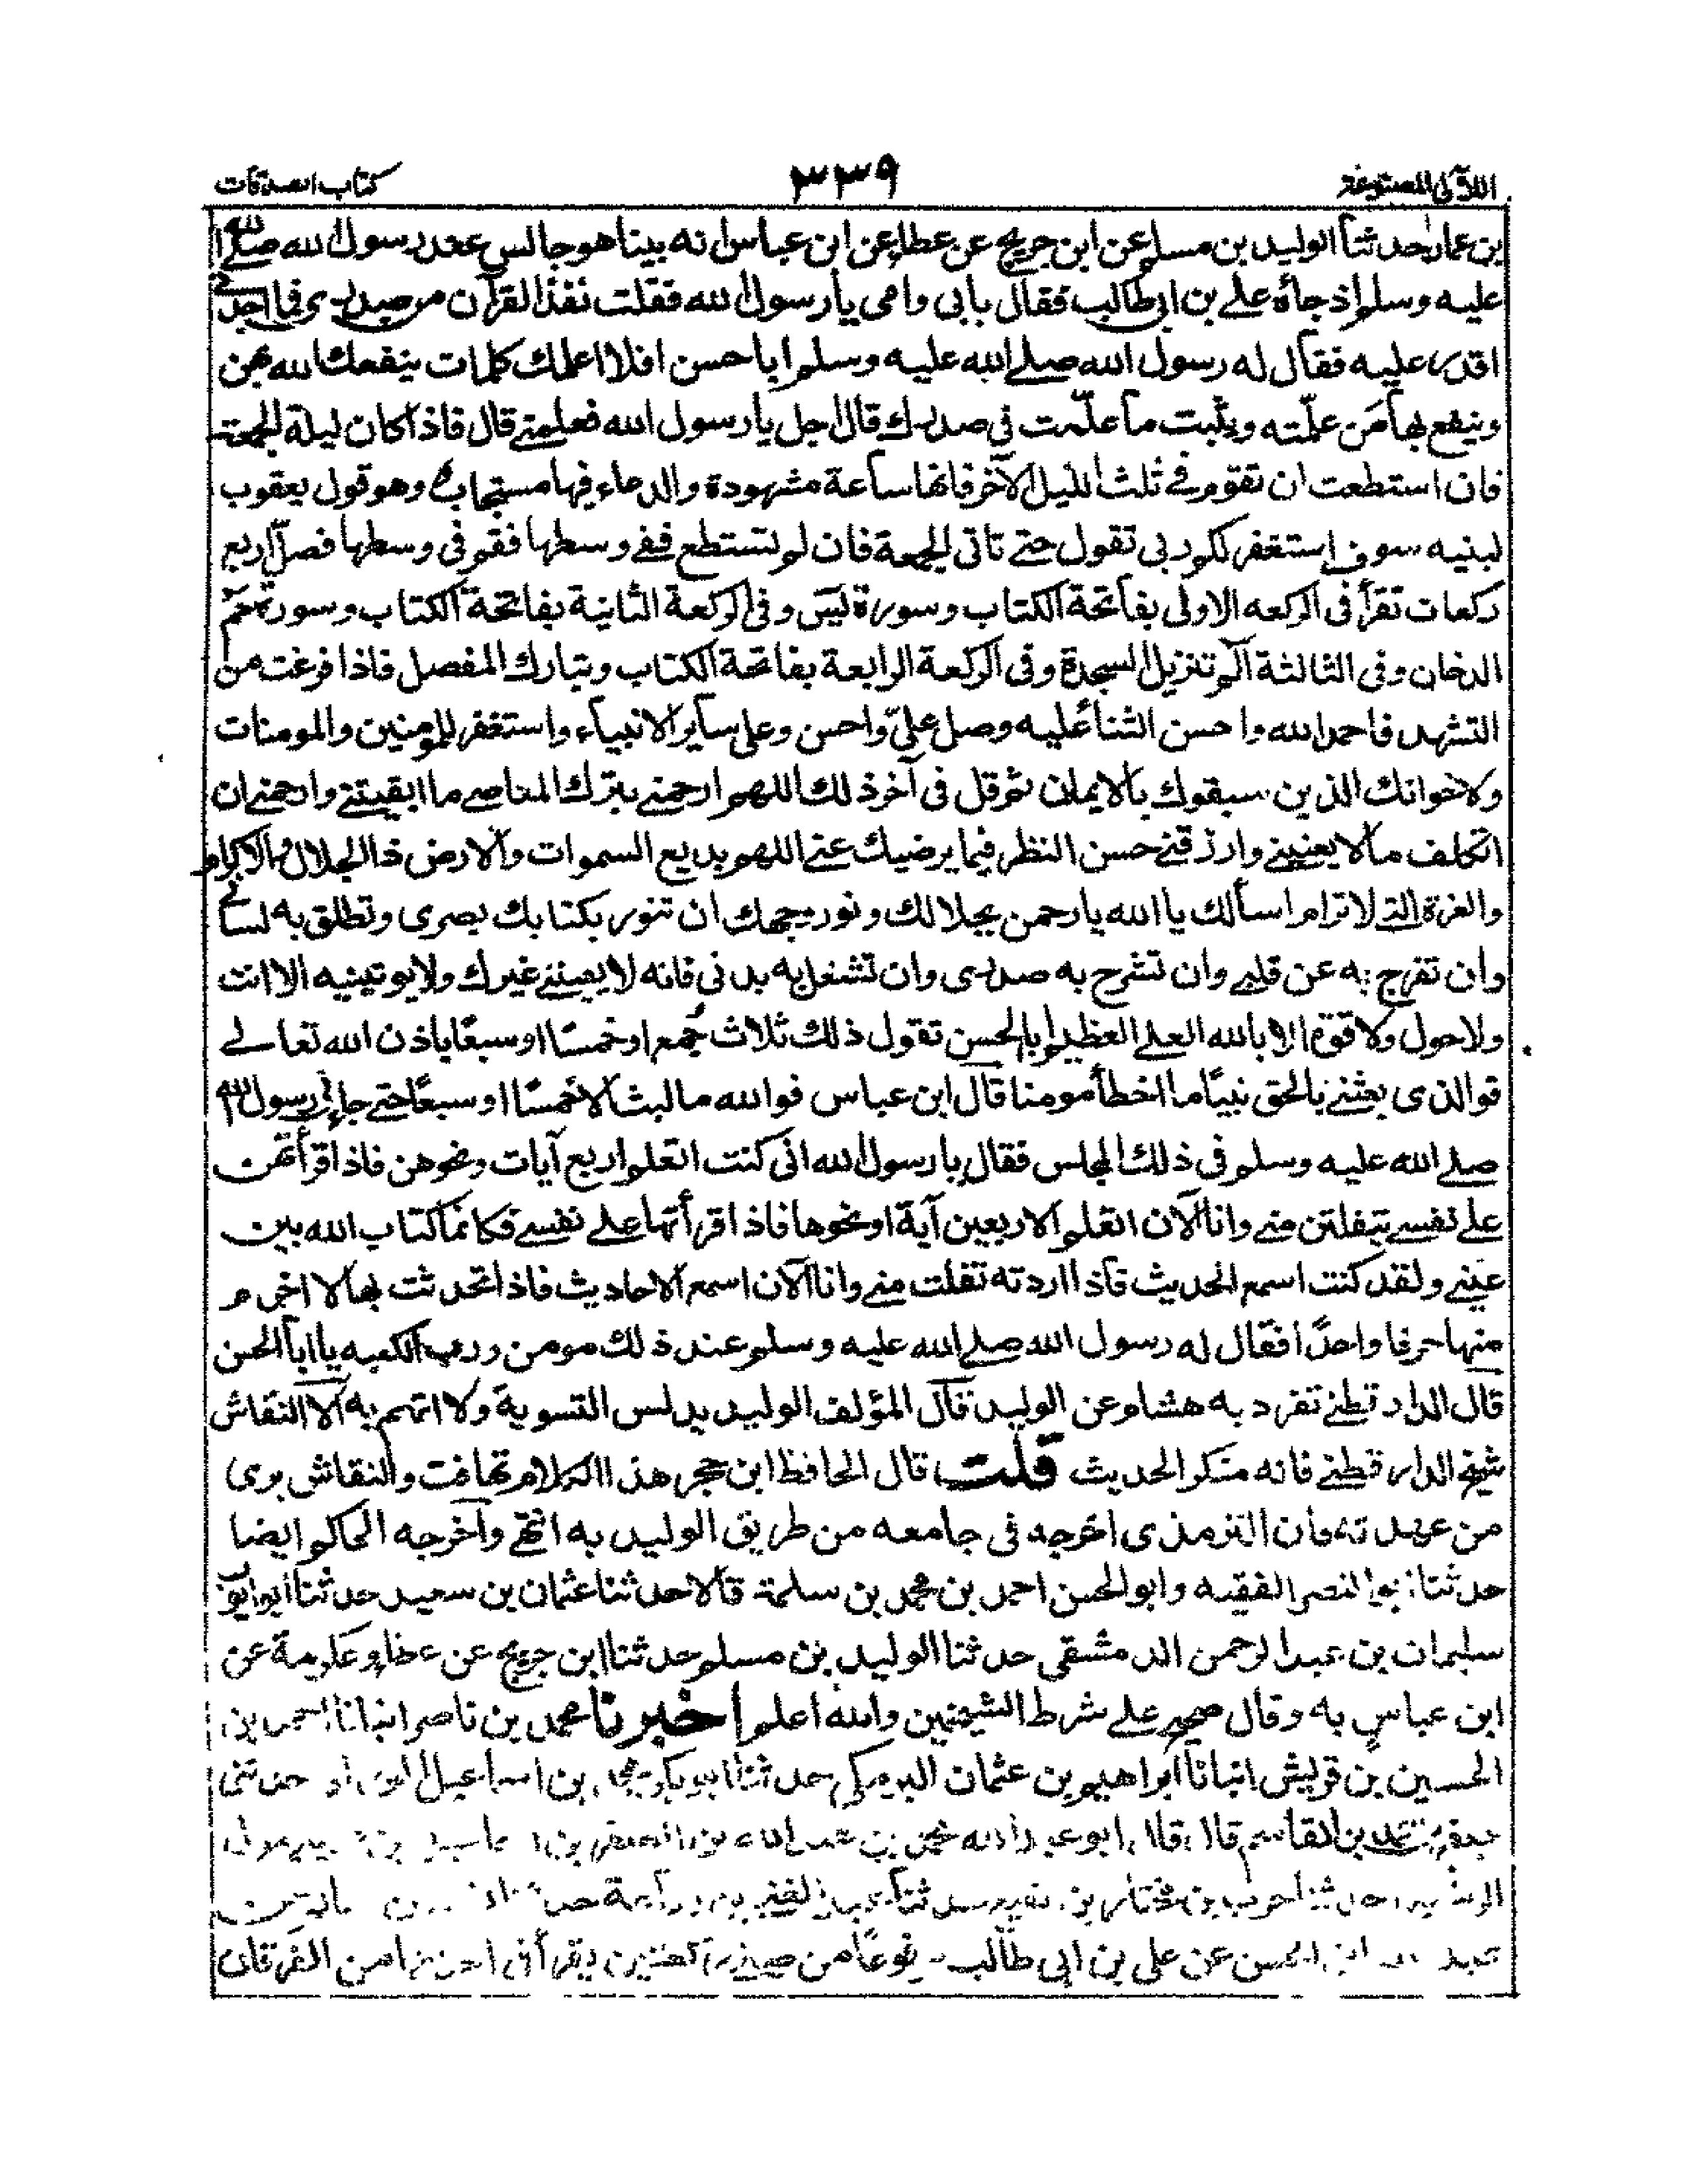 اللآلى المصنوعة
٣٣٩
كتاب الصدقات
بن عمار حدثنا الوليد بن مسلم عن ابن جريج عن عطاء عن ابن عباس انه بينا هو جالس عند رسول الله صلے الله
عليه وسلم اذ جاءه علے بن ابى طالب فقال بابى وامى يا رسول الله فقلت نفذ القرآن من صدرى فما اجدنے
اقدر عليه فقال له رسول الله صلے الله عليه وسلم ابا حسن افلا اعلمك كلمات ينفعك الله بهن
وينفع بها من علمته ويثبت ما علّمت فى صدرك قال اجل يا رسول الله فعلمنے قال فاذا كان ليلة الجمعة
فان استطعت ان تقوم فے ثلث الليل الآخر فانها ساعة مشهودة والدعاء فيها مستجاب وهو قول يعقوب
لبنيه سوف استغفر لكم ربى تقول حتے تاتى الجمعة فان لم تستطع ففے وسطها فقم فى وسطها فصلّ اربع
ركعات تقرأ فى الركعه الاولى بفاتحة الكتاب وسورة يس وفى الركعة الثانية بفاتحة الكتاب وسورة حم
الدخان وفى الثالثة الم تنزيل السجدة وفى الركعة الرابعة بفاتحة الكتاب وتبارك المفصل فاذا فرغت من
التشهد فاحمد الله واحسن الثناء عليه وصل علىّ واحسن وعلى سائر الانبياء واستغفر للمومنين والمومنات
ولاخوانك الذين سبقوك بالايمان ثم قل فى آخر ذلك اللهم ارحمنے بترك المعاصے ما ابقيتنے وارحمنے ان
اتكلف ما لا يعنينے وارزقنے حسن النظر فيما يرضيك عنے اللهم بديع السموات والارض ذا الجلال والاكرام
والعزة التے لا ترام اسألك يا الله يا رحمن بجلالك ونور وجهك ان تنور بكتابك بصرى وتطلق به لسانے
وان تفرج به عن قلبے وان تشرح به صدرى وان تشغل به بدنى فانه لا يعيننے غيرك ولا يوتينيه الا انت
ولا حول ولا قوة الا بالله العلے العظيم ابا الحسن تقول ذلك ثلاث جمع او خمسًا او سبعًا باذن الله تعالے
فوالذى بعثنے بالحق نبيًا ما اخطأ مومنا قال ابن عباس فوالله ما لبث الا خمسًا او سبعًا حتے جاء الى رسول الله
صلے الله عليه وسلم فى ذلك المجلس فقال يا رسول الله انى كنت اتعلم اربع آيات ونحوهن فاذا قرأتهن
علے نفسے يتفلتن منے وانا الآن اتعلم الاربعين آية او نحوها فاذا قرأتها علے نفسے فكانما كتاب الله بين
عينے ولقد كنت اسمع الحديث فاذا اردته تفلت منے وانا الآن اسمع الاحاديث فاذا تحدثت بها لا اخرم
منها حرفا واحدًا فقال له رسول الله صلے الله عليه وسلم عند ذلك مومن ورب الكعبه يا ابا الحسن
قال الدارقطنے تفرد به هشام عن الوليد قال المؤلف الوليد يدلس التسوية ولا اتهم به الا النقاش
شيخ الدارقطنے فانه منكر الحديث قلت قال الحافظ ابن حجر هذا الكلام تهافت والنقاش برى
من عهدته فان الترمذى اخرجه فى جامعه من طريق الوليد به انتهے واخرجه الحاكم ايضا
حدثنا ابو النصر الفقيه وابو الحسن احمد بن محمد بن سلمة قالا حدثنا عثمان بن سعيد حدثنا ابو ايوب
سليمان بن عبد الرحمن الدمشقى حدثنا الوليد بن مسلم حدثنا ابن جريج عن عطاء وعكرمة عن
ابن عباس به وقال صحيح علے شرط الشيخين والله اعلم اخبرنا محمد بن ناصر انبانا احمد بن
الحسين بن قريش انبانا ابراهيم بن عثمان البرمكى حدثنا ابو بكر محمد بن اسماعيل الوراق حدثنى
محمد بن القاسم قال قال ابو عبد الله
حدثنا بن مختار بن
الحسن عن على بن ابى طالب من يقرأ فى من الفرقان